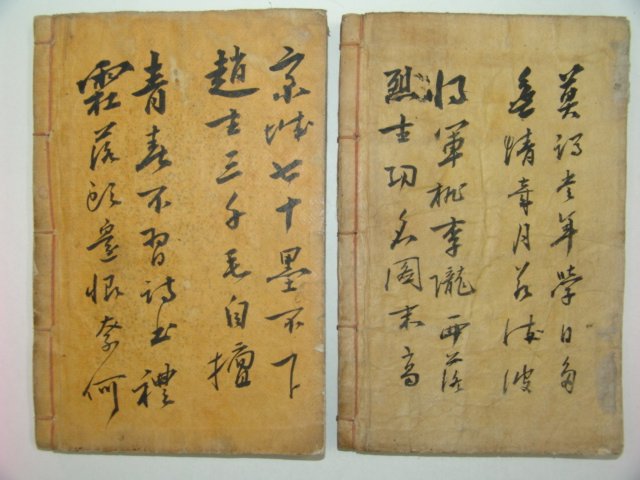 莫謂當年學日多
無情歲月若流波
將軍桃李隴西落
烈士功名圖末高
齊城七十墨不下
趙士三千毛自擅
青春不習詩書禮
霜落頭邊恨奈何